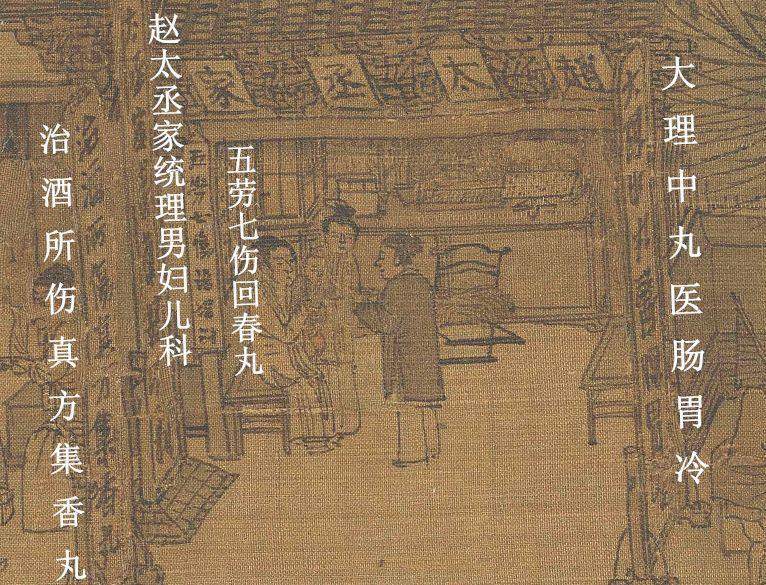 趙太丞家
大理中丸医肠胃冷
五劳七伤回春丸
赵太丞家统理男妇儿科
治酒所伤真方集香丸